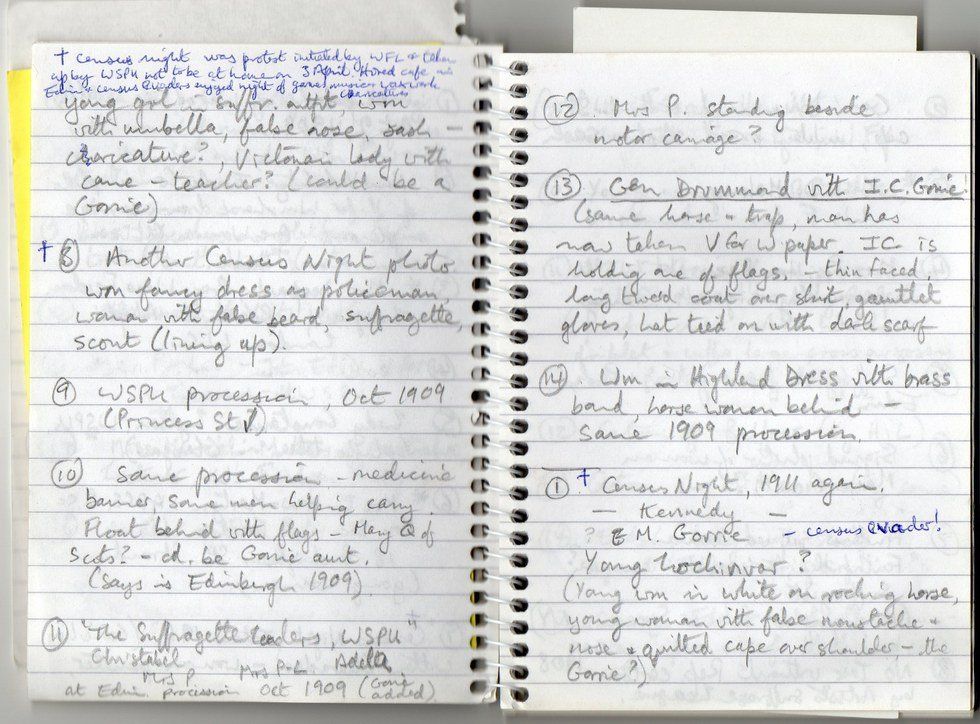 † Census night was protest initiated by WFL & taken
up by WSPU not to be at home on 3 April. Hired cafe in
Edin & census evaders enjoyed night of games music & waxwork
caricatures
young girl in suffr. outft, wom
with umbrella, false nose, sash –
caricature?, Victorian lady with
cane – teacher? (could be a
Gorrie)
† ⑧ Another Census Night photo
wom fancy dress as policeman,
woman with false beard, suffragette,
scout (lining up).
⑨ WSPU procession, Oct 1909
(Princess St)
⑩ Same procession – medicine
banner, some men helping carry.
Float behind with flags – Mary Q of
Scots? – cd. be Gorrie aunt.
(Says is Edinburgh 1909)
⑪ "The Suffragette leaders, WSPU"
Christabel Mrs P Mrs P-L Adela
at Edin. procession Oct 1909 (Gorrie
added)
⑫ Mrs P. standing beside
motor carriage?
⑬ Gen Drummond with I.C. Gorrie!
(same horse & trap, man has
now taken V for W paper. IC is
holding one of flags, – thin faced,
long tweed coat over skirt, gauntlet
gloves, hat tied on with dark scarf
⑭ Wm in Highland Dress with brass
band, horse woman behind –
same 1909 procession.
① † Census Night, 1911 again.
— Kennedy —
? E M. Gorrie – census evader!
Young Lochinvar?
(Young wm in white on rocking horse,
young woman with false moustache &
nose & quilted cape over shoulder – the
Gorrie?)